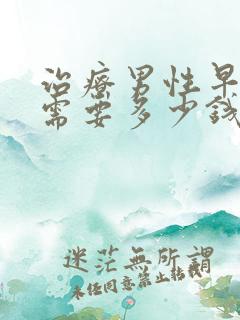 治療男性早
需要多少錢
迷茫無所謂
未經同意禁止轉載